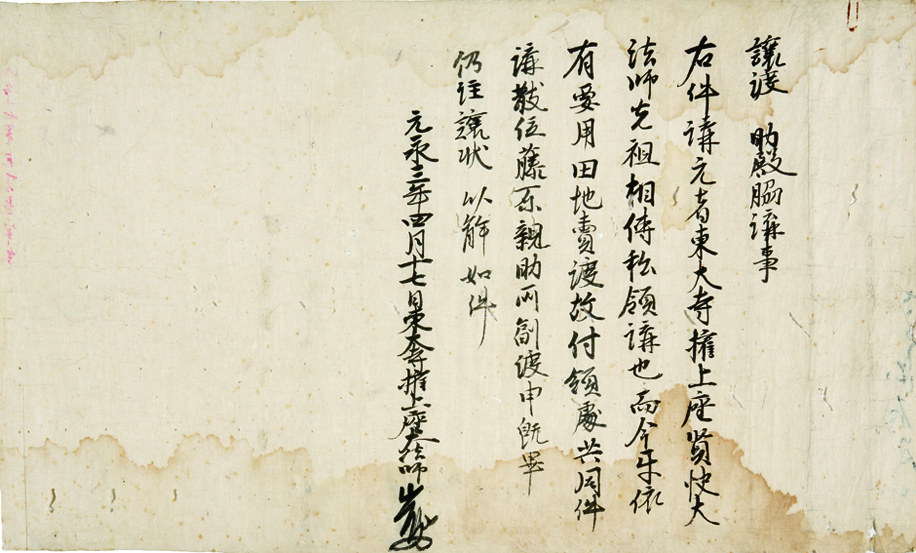 譲渡 助殿脇講事
右件講元者東大寺権上座賢快大
法師先祖相傳私領講也而今年依
有要用田地賣渡故付領處共同件
講散位藤原親助所副渡申既畢
仍注譲状以解如件
元永三年四月十七日東大寺権上座大法師